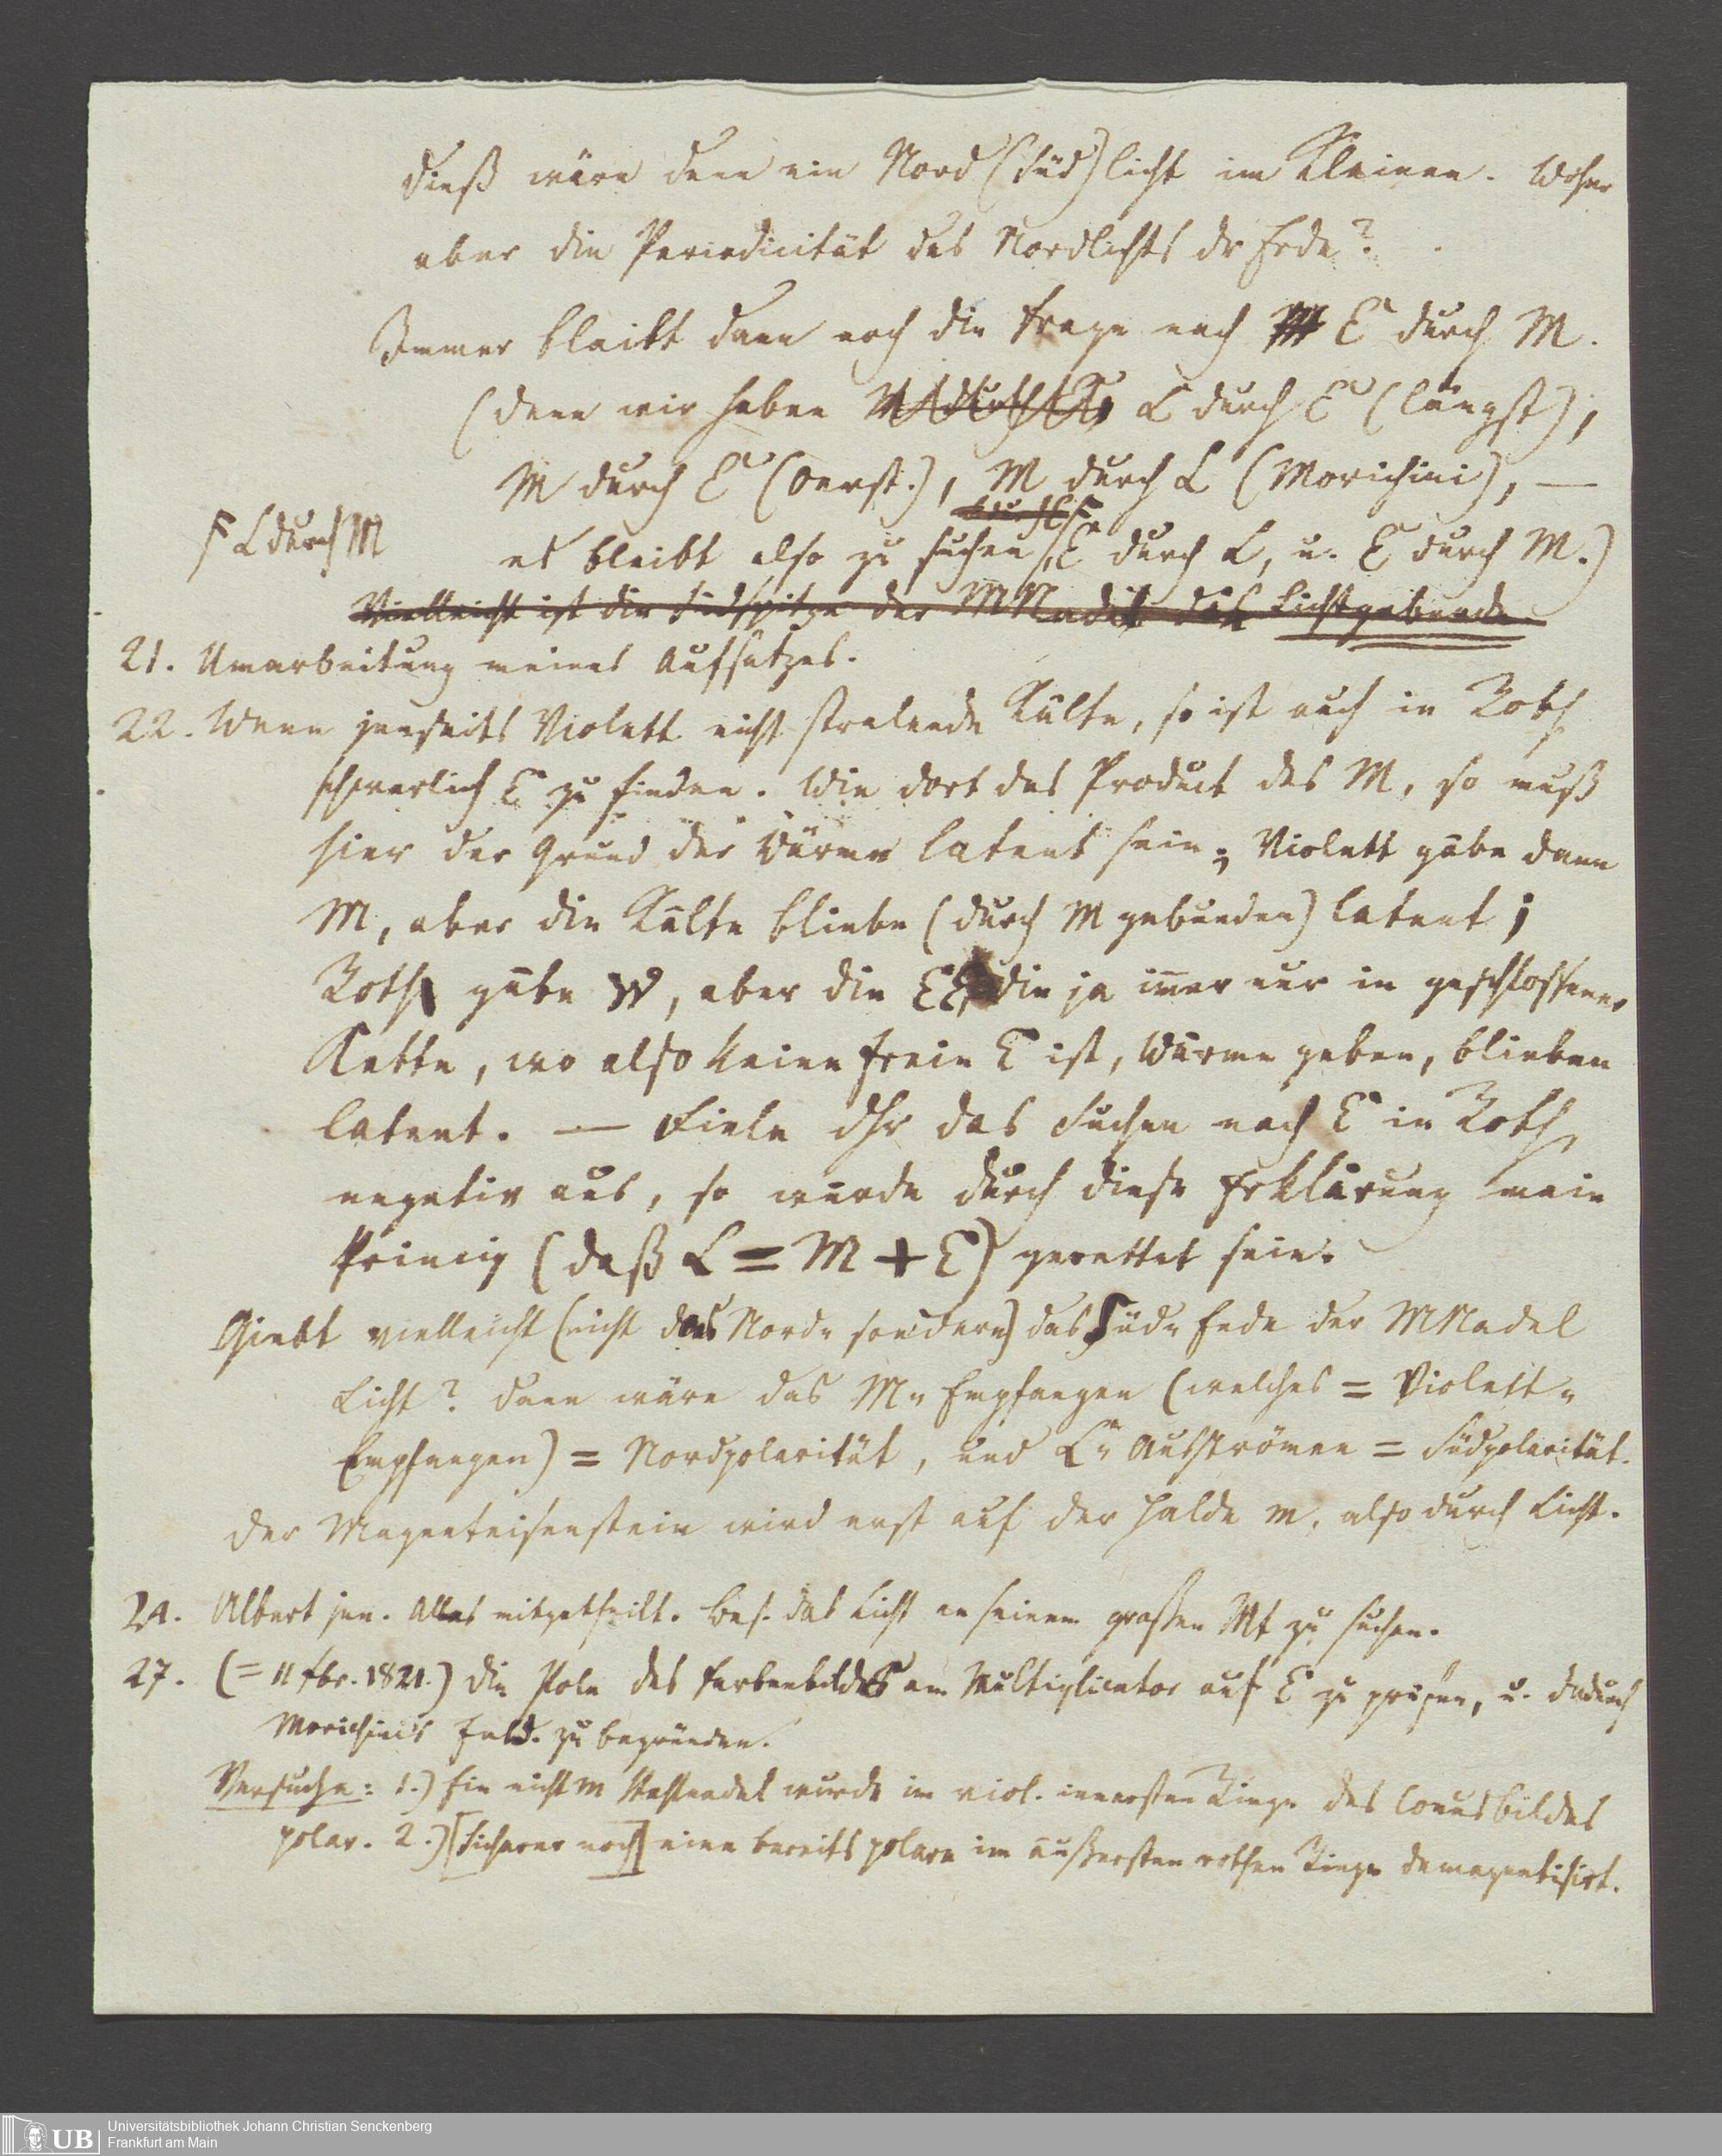 dieß wäre denn ein Nord(Süd)licht im Kleinen. Woher
aber die Periodicität des Nordlichts dr Erde?
Immer bleibt dann noch die Frage nach E durch M.
(denn wir haben L durch E (längst),
M durch E (Oerst.), M durch L (Morichini), —
F L durch M
es bleibt also zu suchen F, E durch L, u. E durch M.)
Vielleicht ist die Südspitze der MNadel das Lichtgebende.
21. Umarbeitung meines Aufsatzes.
22. Wenn jenseits Violett nicht stralende Kälte, so ist auch in Roth
schwerlich E zu finden. Wie dort das Product des M, so muß
hier der Grund der Wärme latent sein; Violett gäbe dann
M, aber die Kälte bliebe (durch M gebunden) latent;
Roth gäbe W, aber die EE, die ja im̅er nur in geschlossener
Kette, wo also keine freie E ist, Wärme geben, blieben
latent. — Fiele dhr das Suchen nach E in Roth
negativ aus, so würde durch diese Erklärung mein
Princip (daß L = M + E) gerettet sein.
Giebt vielleicht (nicht das Nord= sondern) das Süd= Ende der MNadel
Licht? dann wäre das M= Empfangen (welches = Violett=
Empfangen) = Nordpolarität, und L= Ausströmen = Südpolarität.
Der Magneteisenstein wird erst auf der Halde m, also durch Licht.
24. Albert jun. Alles mitgetheilt. Bes. das Licht an seinem großen Mt zu suchen.
27. (= 11 fbr. 1821.) Die Pole des Farbenbildes am Multiplicator auf E zu prüfen, u. dadurch
Morichini's Entd. zu begründen.
Versuche: 1.) Eine nicht m Stahlnadel wurde im viol. innersten Ringe des Conusbildes
polar. 2.) [Sicherer noch] eine bereits polare im äußersten rothen Ringe demagnetisirt.
UB Universitätsbibliothek Johann Christian Senckenberg
Frankfurt am Main